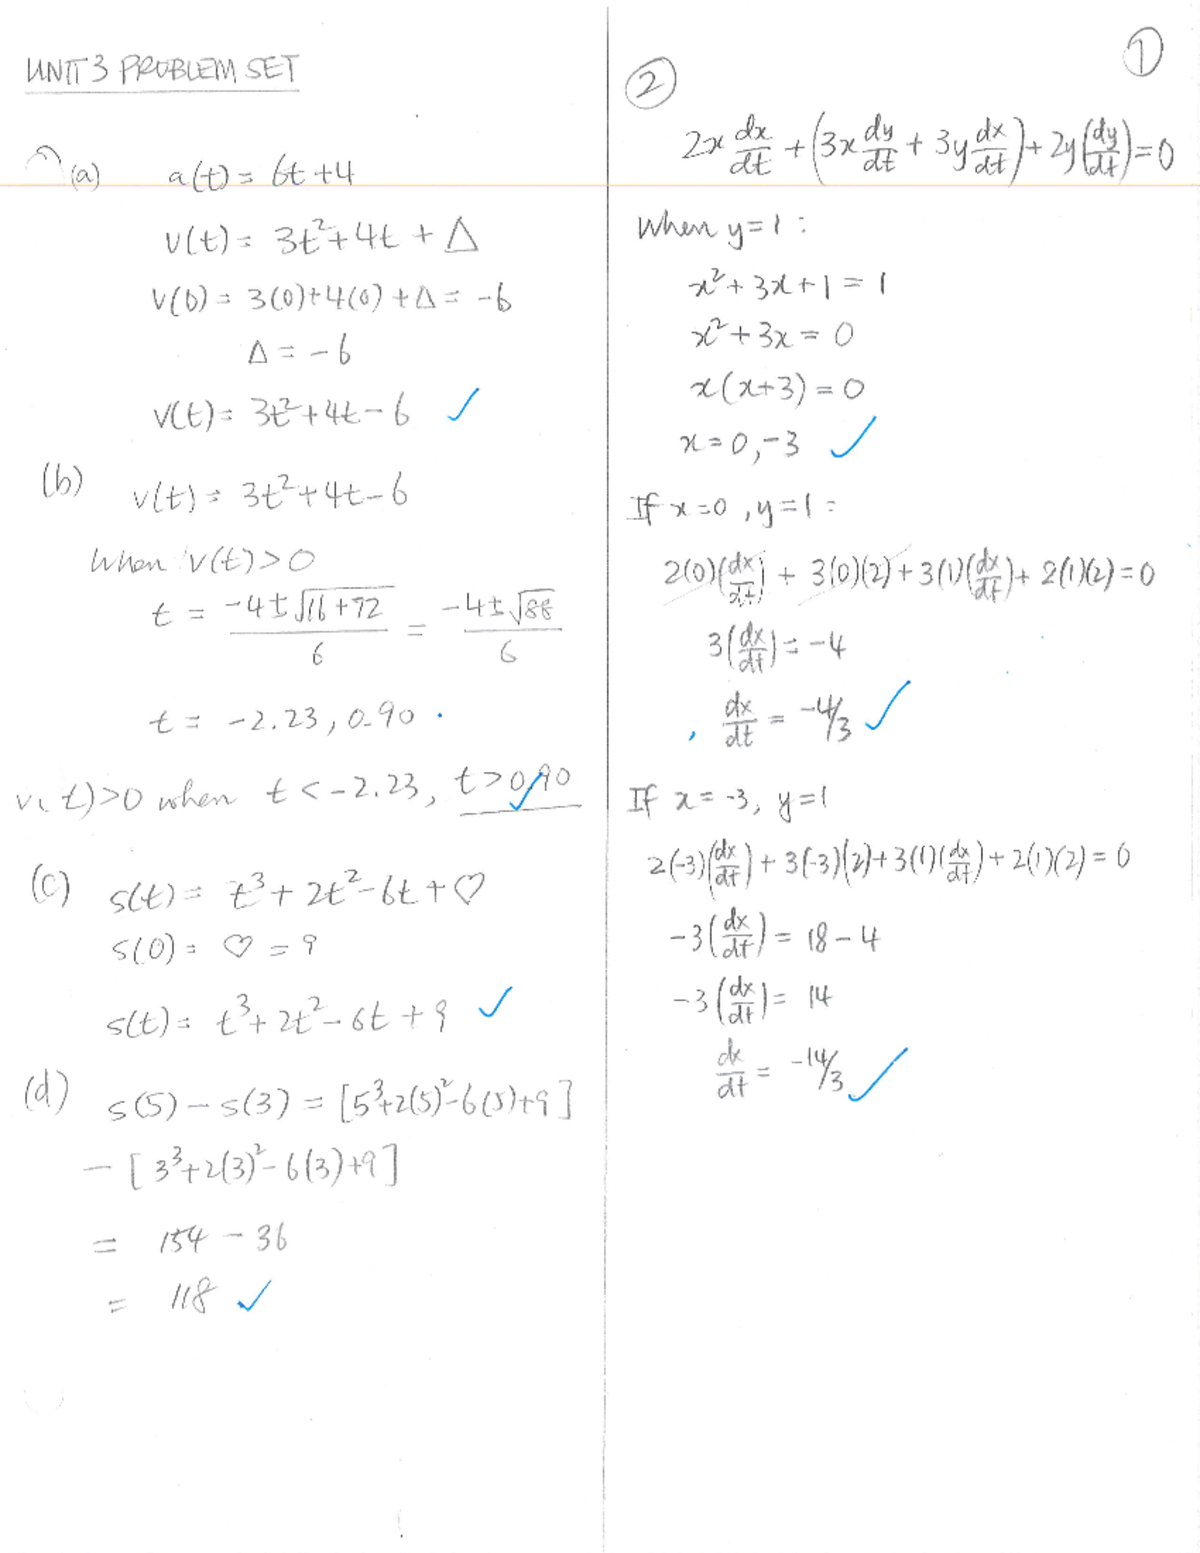 UNIT 3 PROBLEM SET
(a) a(t) = 6t + 4
v(t) = 3t² + 4t + Δ
v(0) = 3(0) + 4(0) + Δ = -6
Δ = -6
v(t) = 3t² + 4t - 6 ✓
(b) v(t) = 3t² + 4t - 6
When v(t) > 0
t = (-4 ± √(16 + 72))/6 = (-4 ± √88)/6
t = -2.23, 0.90
v(t) > 0 when t < -2.23, t > 0.90 ✓
(c) s(t) = t³ + 2t² - 6t + ♡
s(0) = ♡ = 9
s(t) = t³ + 2t² - 6t + 9 ✓
(d) s(5) - s(3) = [5³ + 2(5)² - 6(5) + 9]
- [3³ + 2(3)² - 6(3) + 9]
= 154 - 36
= 118 ✓
①
②
2x dx/dt + (3x dy/dt + 3y dx/dt) + 2y(dy/dt) = 0
When y = 1 :
x² + 3x + 1 = 1
x² + 3x = 0
x(x+3) = 0
x = 0, -3 ✓
If x = 0, y = 1 :
2(0)(dx/dt) + 3(0)(2) + 3(1)(dx/dt) + 2(1)(2) = 0
3(dx/dt) = -4
dx/dt = -4/3 ✓
If x = -3, y = 1
2(-3)(dx/dt) + 3(-3)(2) + 3(1)(dx/dt) + 2(1)(2) = 0
-3(dx/dt) = 18 - 4
-3(dx/dt) = 14
dx/dt = -14/3 ✓